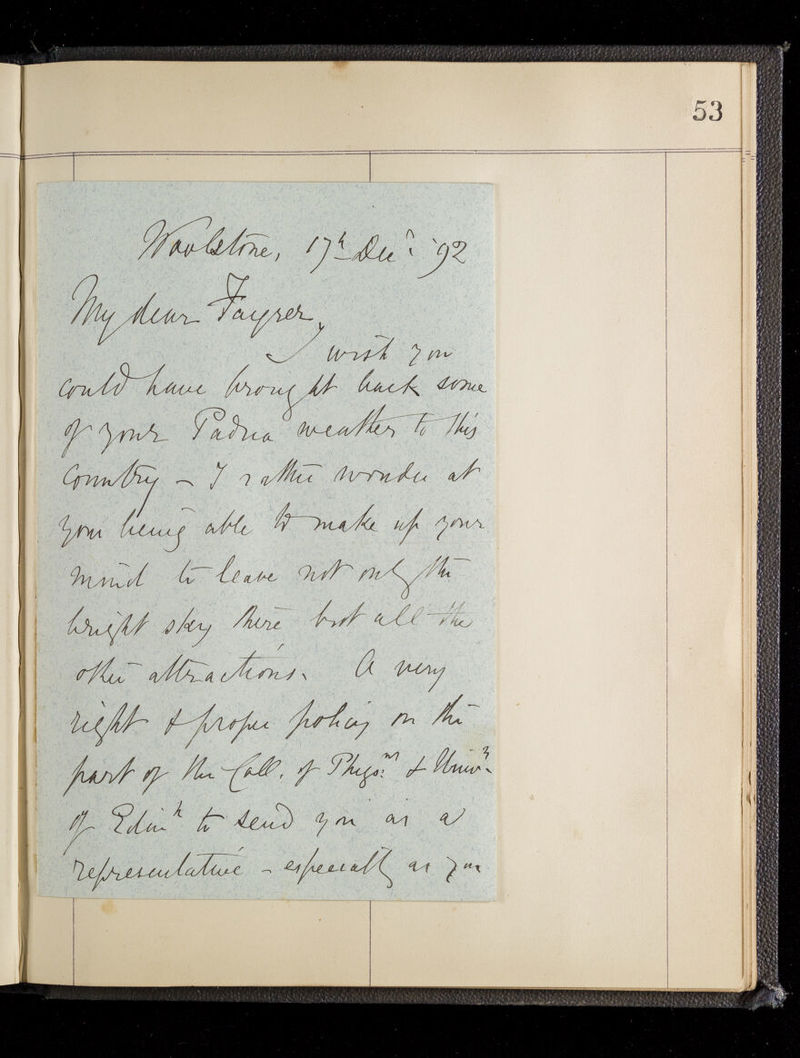 53
Woolstone, 17th Decr. '92
My dear Fayrer,
I wish you
could have brought back some
of your Padua weather to this
Country – I rather wonder at
your being able to make up your
mind to leave not only the
bright sky there but all the
other attractions. A very
right & proper policy on the
part of the Coll. of Physns. & Univy.
of Edinh to send you as a
representative – especially as you